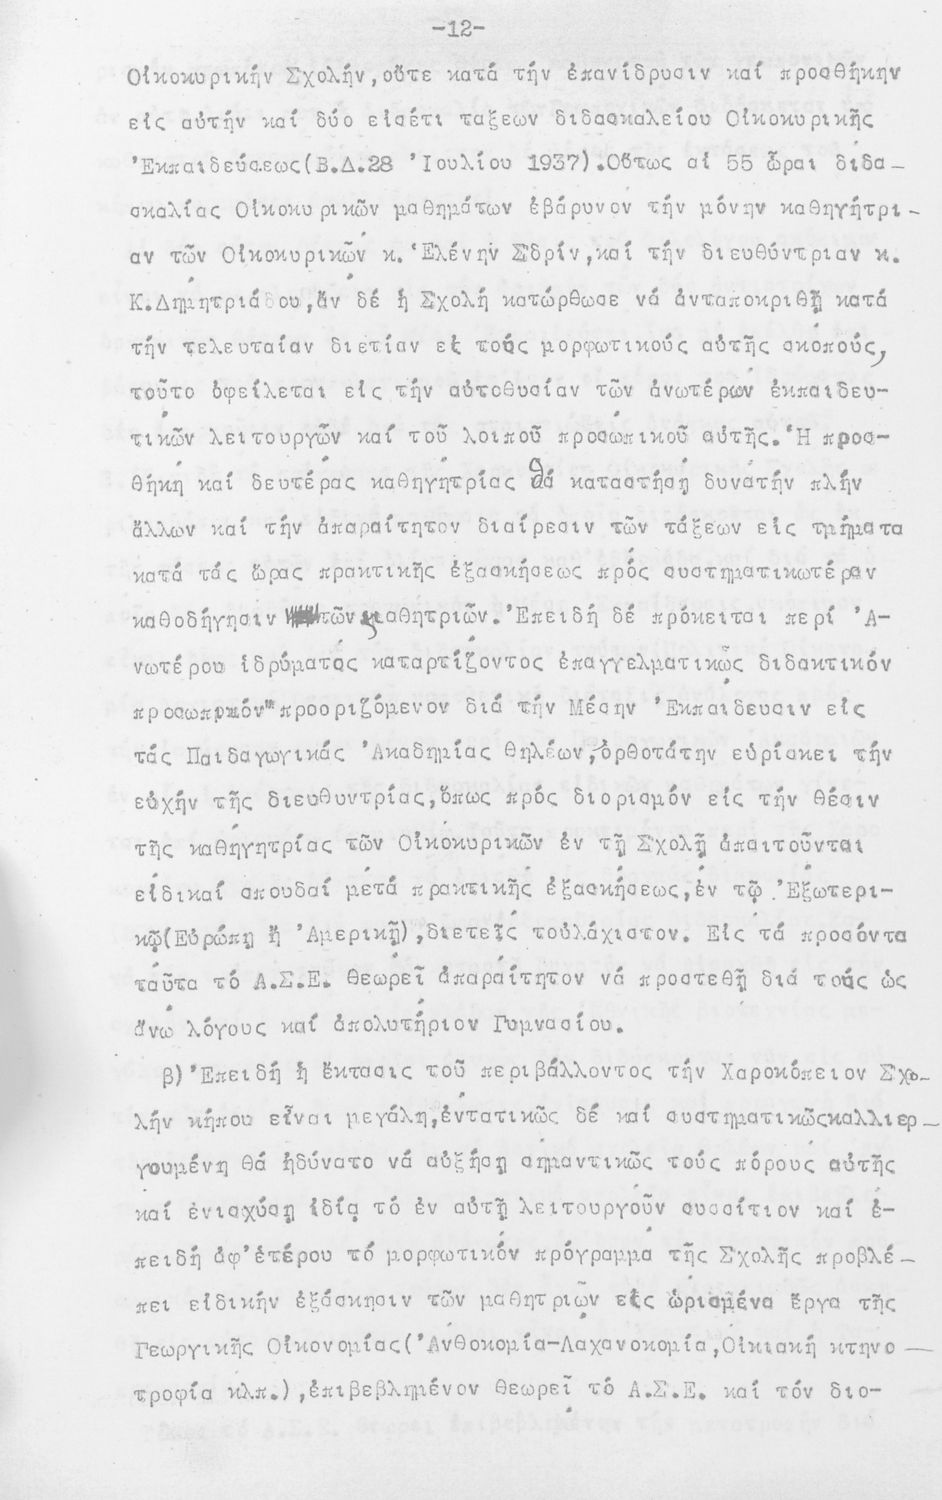 -12-
Οἰκοκυρικήν Σχολήν,οὔτε κατά τήν ἐπανίδρυσιν καί προσθήκην
εἰς αὐτήν καί δύο εἰσέτι ταξεων διδασκαλείου Οἰκοκυρικῆς
Ἐκπαιδεύσεως(Β.Δ.28 Ἰουλίου 1937).Οὕτως αἱ 55 ὧραι διδα-
σκαλίας Οἰκοκυρικῶν μαθημάτων ἐβάρυνον τήν μόνην καθηγήτρι-
αν τῶν Οἰκοκυρικῶν κ.Ἑλένην Σδρίν,καί τήν διευθύντριαν κ.
Κ.Δημητριάδου,ἄν δέ ἡ Σχολή κατώρθωσε νά ἀνταποκριθῇ κατά
τήν τελευταίαν διετίαν εἰ τούς μορφωτικούς αὐτῆς σκοπούς,
τοῦτο ὀφείλεται εἰς τήν αὐτοθυσίαν τῶν ἀνωτέρων ἐκπαιδευ-
τικῶν λειτουργῶν καί τοῦ λοιποῦ προσωπικοῦ αὐτῆς.Ἡ προσ-
θήκη καί δευτέρας καθηγητρίας θά καταστήσῃ δυνατήν πλήν
ἄλλων καί τήν ἀπαραίτητον διαίρεσιν τῶν τάξεων εἰς τμήματα
κατά τάς ὥρας πρακτικῆς ἐξασκήσεως πρός συστηματικωτέραν
καθοδήγησιν τῶν μαθητριῶν.Ἐπειδή δέ πρόκειται περί Ἀ-
νωτέρου ἱδρύματος καταρτίζοντος ἐπαγγελματικῶς διδακτικόν
προσωπικόν προοριζόμενον διά τήν Μέσην Ἐκπαίδευσιν εἰς
τάς Παιδαγωγικάς Ἀκαδημίας θηλέων,ὀρθοτάτην εὑρίσκει τήν
εὐχήν τῆς διευθυντρίας,ὅπως πρός διορισμόν εἰς τήν θέσιν
τῆς καθηγητρίας τῶν Οἰκοκυρικῶν ἐν τῇ Σχολῇ ἀπαιτοῦνται
εἰδικαί σπουδαί μετά πρακτικῆς ἐξασκήσεως,ἐν τῷ Ἐξωτερι-
κῷ(Εὐρώπῃ ἤ Ἀμερικῇ),διετεῖς τοὐλάχιστον. Εἰς τά προσόντα
ταῦτα τό Α.Σ.Ε. θεωρεῖ ἀπαραίτητον νά προστεθῇ διά τούς ὡς
ἄνω λόγους καί ἀπολυτήριον Γυμνασίου.
β)Ἐπειδή ἡ ἔκτασις τοῦ περιβάλλοντος τήν Χαροκόπειον Σχο-
λήν κήπου εἶναι μεγάλη,ἐντατικῶς δέ καί συστηματικῶςκαλλιερ-
γουμένη θά ἠδύνατο νά αὐξήσῃ σημαντικῶς τούς πόρους αὐτῆς
καί ἐνισχύσῃ ἰδίᾳ τό ἐν αὐτῇ λειτουργοῦν συσσίτιον καί ἐ-
πειδή ἀφ'ἑτέρου τό μορφωτικόν πρόγραμμα τῆς Σχολῆς προβλέ-
πει εἰδικήν ἐξάσκησιν τῶν μαθητριῶν εἰς ὡρισμένα ἔργα τῆς
Γεωργικῆς Οἰκονομίας(Ἀνθοκομία-Λαχανοκομία,Οἰκιακή κτηνο-
τροφία κλπ.),ἐπιβεβλημένον θεωρεῖ τό Α.Σ.Ε. καί τόν διο-